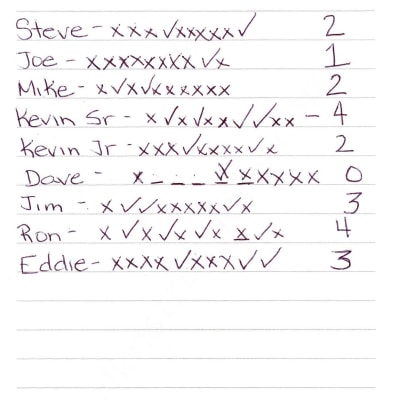 Steve - x x x √ x x x x x √ 2
Joe - x x x x x x x x √ x 1
Mike - x √ x √ x x x x x x 2
Kevin Sr - x √ x √ x x √ √ x x - 4
Kevin Jr - x x x √ x x x x √ x 2
Dave - x _ _ _ x x x x x x 0
Jim - x √ √ x x x x x √ x 3
Ron - x √ x √ x √ x x √ x 4
Eddie - x x x x √ x x x √ √ 3